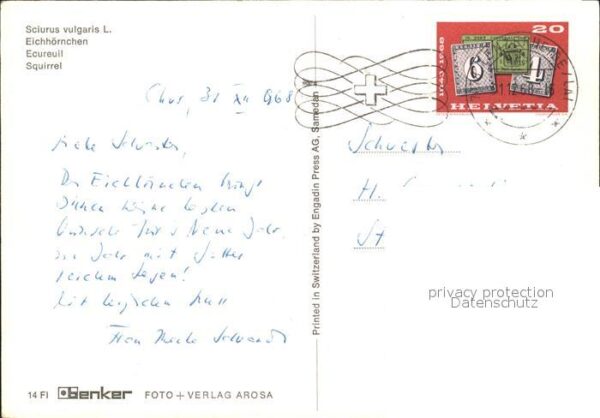 Sciurus vulgaris L.
Eichhörnchen
Ecureuil
Squirrel
20
1843-1968
6
4
HELVETIA
Chur, 31 XII 1968
Das Eichhörnchen bringt
Ihnen meine besten
Wünsche für's Neue Jahr,
ein Jahr mit Gottes
reichem Segen!
Mit herzlichem Gruss
Schwester
H.
St
Printed in Switzerland by Engadin Press AG, Samedan
privacy protection
Datenschutz
14 FI benker FOTO + VERLAG AROSA